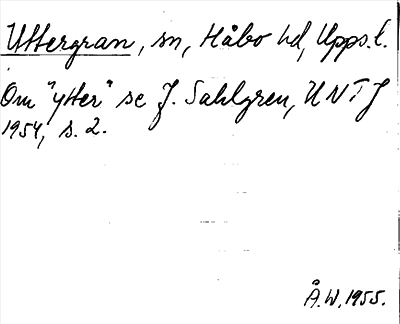 Yttergran, sn, Håbo hd, Upps. l.
Om "ytter" se J. Sahlgren, UNT J
1954, s. 2.
Å.W. 1955.